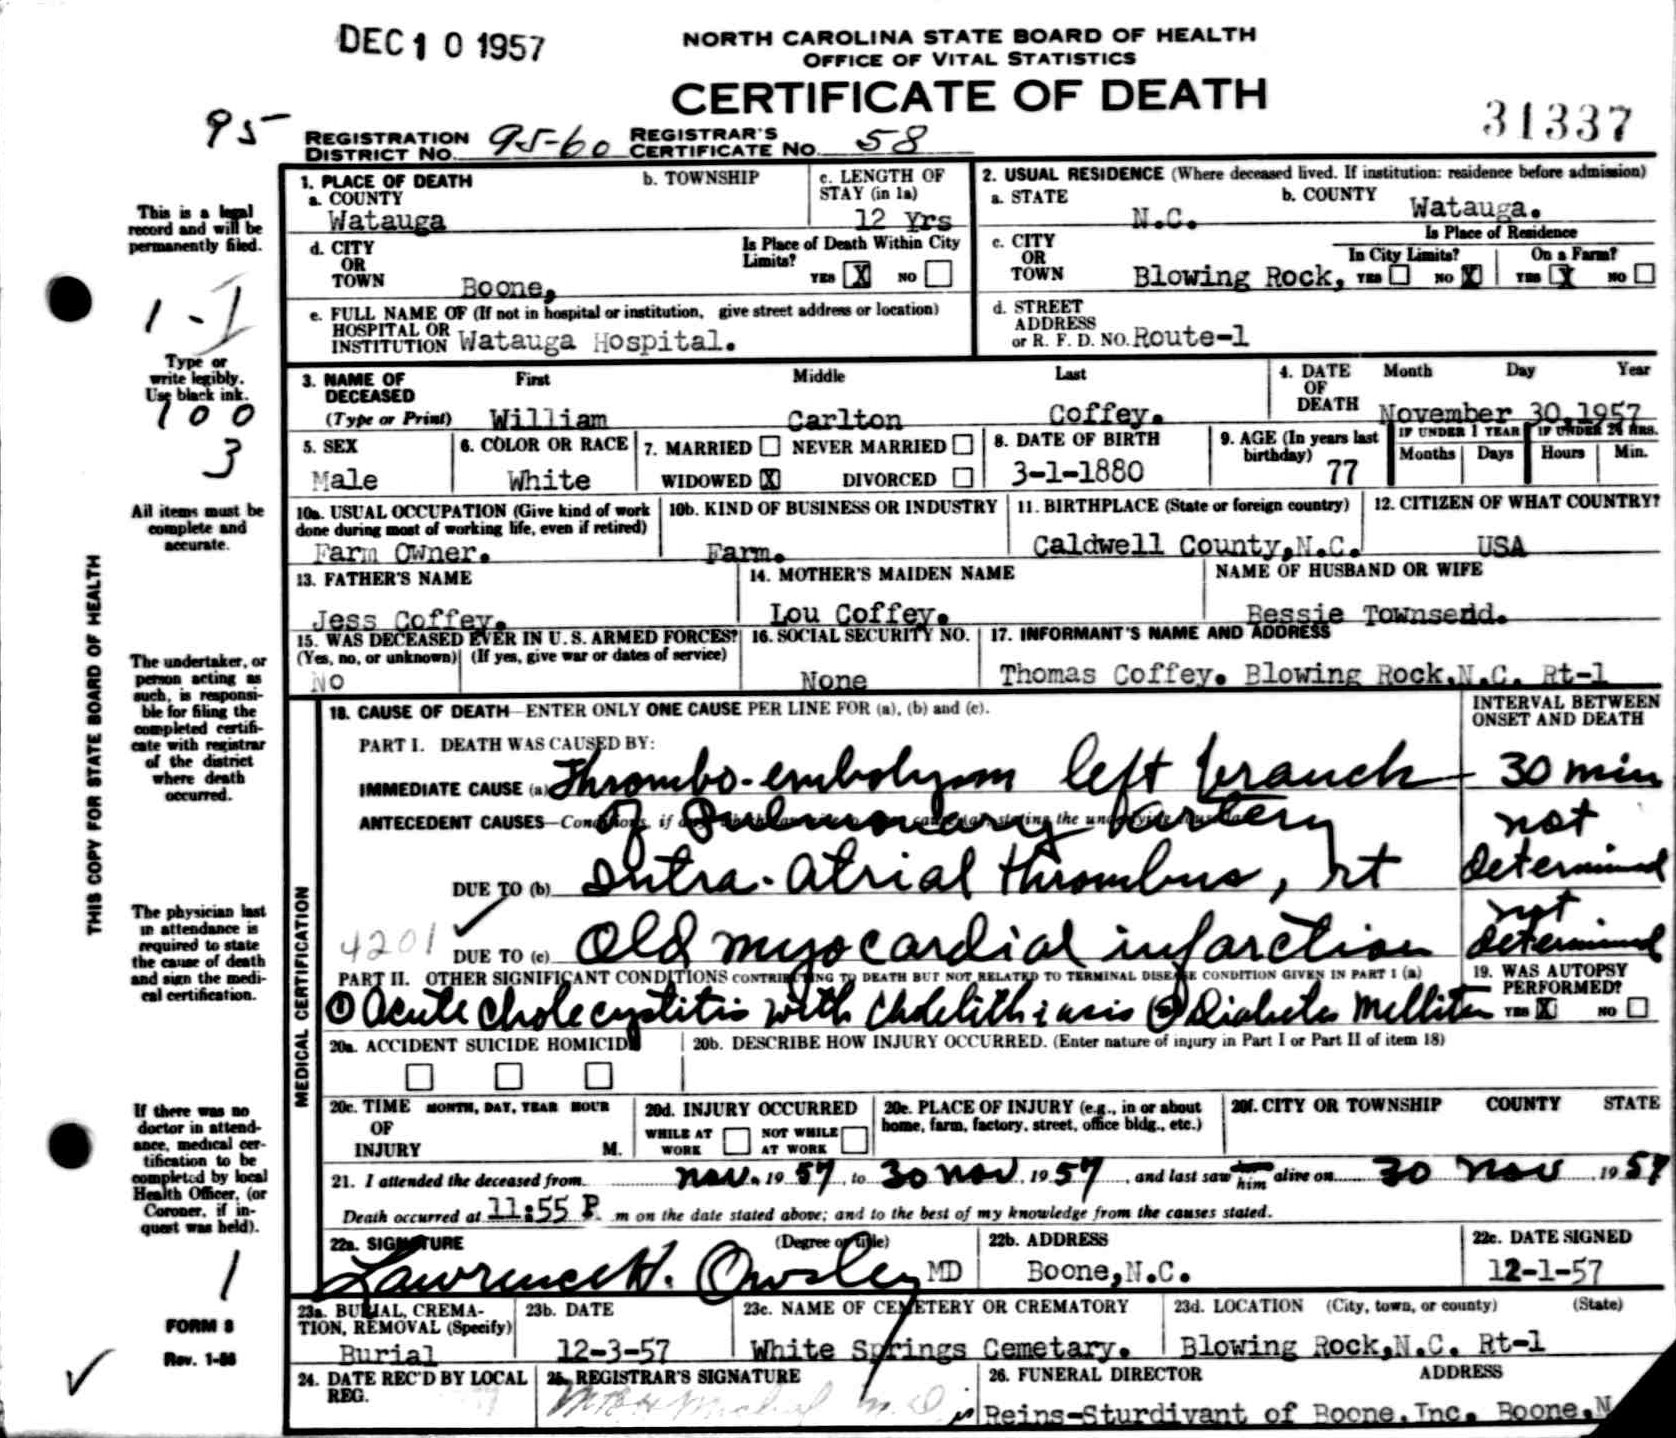 DEC 10 1957
NORTH CAROLINA STATE BOARD OF HEALTH
OFFICE OF VITAL STATISTICS
CERTIFICATE OF DEATH
31337
95
REGISTRATION DISTRICT NO. 95-60 REGISTRAR'S CERTIFICATE NO. 58
This is a legal record and will be permanently filed.
1. PLACE OF DEATH
a. COUNTY Watauga
b. TOWNSHIP
c. LENGTH OF STAY (in 1a) 12 Yrs
2. USUAL RESIDENCE (Where deceased lived. If institution: residence before admission)
a. STATE N.C.
b. COUNTY Watauga.
d. CITY OR TOWN Boone,
Is Place of Death Within City Limits? YES X NO
c. CITY OR TOWN Blowing Rock,
Is Place of Residence
In City Limits? YES NO X
On a Farm? YES X NO
e. FULL NAME OF (If not in hospital or institution, give street address or location) HOSPITAL OR INSTITUTION Watauga Hospital.
d. STREET ADDRESS or R. F. D. NO. Route-1
1-1
Type or write legibly. Use black ink.
100
3
3. NAME OF DECEASED (Type or Print)
First William
Middle Carlton
Last Coffey.
4. DATE OF DEATH Month Day Year November 30,1957
5. SEX Male
6. COLOR OR RACE White
7. MARRIED NEVER MARRIED WIDOWED X DIVORCED
8. DATE OF BIRTH 3-1-1880
9. AGE (In years last birthday) 77
IF UNDER 1 YEAR Months Days
IF UNDER 24 HRS. Hours Min.
All items must be complete and accurate.
10a. USUAL OCCUPATION (Give kind of work done during most of working life, even if retired) Farm Owner.
10b. KIND OF BUSINESS OR INDUSTRY Farm.
11. BIRTHPLACE (State or foreign country) Caldwell County,N.C.
12. CITIZEN OF WHAT COUNTRY? USA
13. FATHER'S NAME Jess Coffey.
14. MOTHER'S MAIDEN NAME Lou Coffey.
NAME OF HUSBAND OR WIFE Bessie Townsend.
15. WAS DECEASED EVER IN U. S. ARMED FORCES? (Yes, no, or unknown) (If yes, give war or dates of service) No
16. SOCIAL SECURITY NO. None
17. INFORMANT'S NAME AND ADDRESS Thomas Coffey. Blowing Rock,N.C. Rt-1
THIS COPY FOR STATE BOARD OF HEALTH
The undertaker, or person acting as such, is responsible for filing the completed certificate with registrar of the district where death occurred.
The physician last in attendance is required to state the cause of death and sign the medical certification.
If there was no doctor in attendance, medical certification to be completed by local Health Officer, (or Coroner, if inquest was held).
MEDICAL CERTIFICATION
18. CAUSE OF DEATH—ENTER ONLY ONE CAUSE PER LINE FOR (a), (b) and (c).
INTERVAL BETWEEN ONSET AND DEATH
PART I. DEATH WAS CAUSED BY:
IMMEDIATE CAUSE (a) Thrombo-embolysm left branch 30 min
ANTECEDENT CAUSES of Pulmonary Artery
DUE TO (b) Intra-Atrial thrombus, rt not determined
4201
DUE TO (c) Old myocardial infarction not determined
PART II. OTHER SIGNIFICANT CONDITIONS CONTRIBUTING TO DEATH BUT NOT RELATED TO TERMINAL DISEASE CONDITION GIVEN IN PART I (a)
① Acute Cholecystitis with Cholelithiasis ② Diabetes Mellitus
19. WAS AUTOPSY PERFORMED? YES X NO
20a. ACCIDENT SUICIDE HOMICIDE
20b. DESCRIBE HOW INJURY OCCURRED. (Enter nature of injury in Part I or Part II of item 18)
20c. TIME OF INJURY MONTH, DAY, YEAR HOUR M.
20d. INJURY OCCURRED WHILE AT WORK NOT WHILE AT WORK
20e. PLACE OF INJURY (e.g., in or about home, farm, factory, street, office bldg., etc.)
20f. CITY OR TOWNSHIP COUNTY STATE
21. I attended the deceased from Nov. 1957 to 30 Nov, 1957, and last saw him alive on 30 Nov 1957
Death occurred at 11:55 P. m on the date stated above; and to the best of my knowledge from the causes stated.
22a. SIGNATURE (Degree or title) Lawrence H. Owsley MD
22b. ADDRESS Boone,N.C.
22c. DATE SIGNED 12-1-57
1
FORM 8
Rev. 1-56
23a. BURIAL, CREMATION, REMOVAL (Specify) Burial
23b. DATE 12-3-57
23c. NAME OF CEMETERY OR CREMATORY White Springs Cemetary.
23d. LOCATION (City, town, or county) (State) Blowing Rock,N.C. Rt-1
24. DATE REC'D BY LOCAL REG.
25. REGISTRAR'S SIGNATURE
26. FUNERAL DIRECTOR ADDRESS Reins-Sturdivant of Boone,Inc. Boone,N